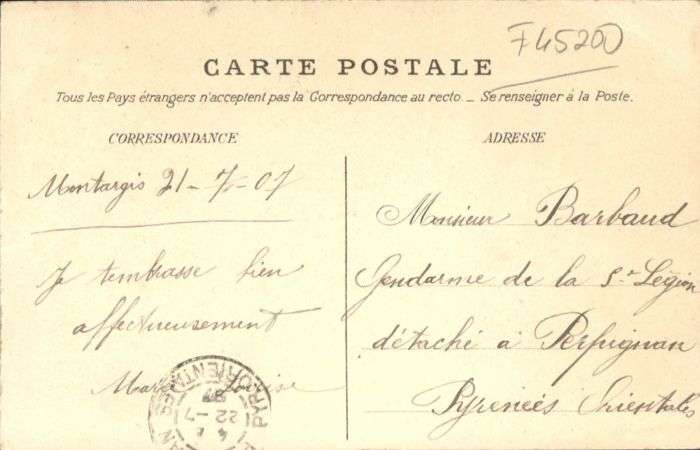 F45200
CARTE POSTALE
Tous les Pays étrangers n'acceptent pas la Correspondance au recto _ Se renseigner à la Poste.
CORRESPONDANCE
Montargis 21-7-07
Je tembrasse bien
affectueusement
Louise
ADRESSE
Monsieur Barbaud
Gendarme de la 5e Légion
détaché à Perpignan
Pyrénées Orientales
PYR. ORIENTALES
22 - 7
07